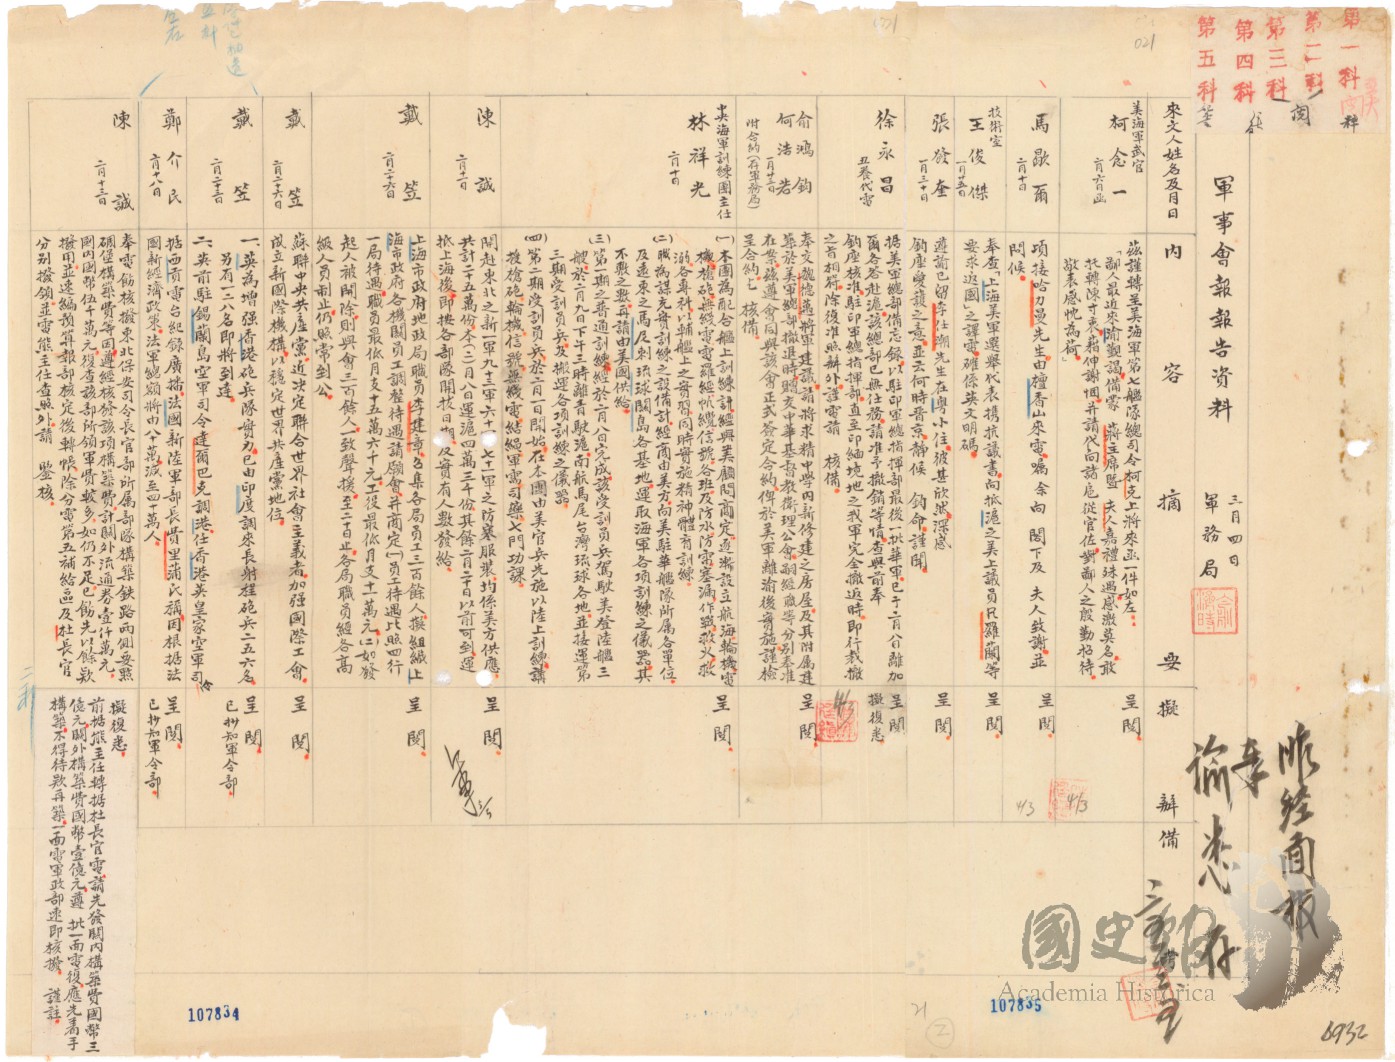 第一科
第二科
第三科
第四科
第五科
閱
021
軍事會報報告資料
三月四日
軍務局
昨經面報
奉
諭悉存
來文人姓名及月日
內容摘要
擬辦
備
美海軍武官
柯念一
二月六日函
茲謹轉呈美海軍第七艦隊總司令柯克上將來函一件如左
鄙人最近來渝觀謁備蒙 蔣主席暨 夫人嘉禮殊遇感激莫名敢
托轉陳于衷藉伸謝悃并請代向諸扈從官佐對鄙人之殷勤招待
敬表感忱為荷
呈閱
馬歇爾
二月十日
項接哈力曼先生由檀香山來電囑余向 閣下及 夫人致謝並
問候
呈閱
技術室
王俊傑
一月廿五日
奉查上海美軍選舉代表携抗議書向抵滬之美上議員
等
要求返國之譯電確係英文明碼
呈閱
張發奎
一月三十日
遵諭已留李任潮先生在粵小住彼甚欣然深感
鈞座愛護之意並云何時晋京靜候 鈞命謹聞
呈閱
徐永昌
丑養代電
据美軍總部備忘錄以駐印軍總指揮部最後一批華軍已于二月八日離加
爾各答赴滬該總部已無任務請准予撤銷等情查與前奉
鈞座核准駐印軍總指揮部直至印緬境地之我軍完全撤返時即行裁撤
之旨相符除復准照辦外謹電請 核備
呈閱
擬復悉
俞鴻鈞
何浩若
一月廿三日
附合約(存軍務局)
奉交魏德邁將軍建議請將求精中學內新修建之房屋及其附屬建
築於美軍總部撤退時贈交中華基督教衛理公會嗣經職等分別奉准
在案茲遵會同與該會正式簽定合約俾於美軍離渝後實施謹檢
呈合約乞 核備
呈閱
央海軍訓練團主任
林祥光
二月十日
(一)本團為配合艦上訓練計經與美顧問商定逐漸設立航海輪機電
機槍砲無線電電羅經帆纜信號各班及防水防雷塞漏作戰救火救
溺各專科以輔艦上之實習同時實施精神體育訓練
(二)職為謀充實訓練之設備計經商由美方向美駐華艦隊所屬各單位
及遠東之馬尼剌琉球關島各基地運取海軍各項訓練之儀器其
不敷之數再請由美國供給
(三)第一期之普通訓練經於二月八日完成該受訓員兵駕馭美登陸艦三
艘於二月九日下午三時離青駛滬南航馬尾台灣琉球各地並接運第
三期受訓員兵及搬運各項訓練之儀器
(四)第二期受訓員兵於二月一日開始在本團由美官兵先施以陸上訓練講
授槍砲輪機信號無綫電結繩軍需司藥七門功課
呈閱
陳誠
二月十二日
開赴東北之新一軍九十三軍六十 七十一軍之防寒服裝均係美方供應
共計二十五萬份本(二)月八日運滬四萬三千份其餘二月二十日以前可到運
抵上海後即按各部隊開拔日期及實有人數發給
呈閱
戴笠
二月二十六日
上海市政府地政局職員李建章召集各局員工三百餘人擬組織上
海市政府各機關員工調整待遇請願會并商定(一)員工待遇比照四行
一局待遇職員最低月支十五萬六千元工役最低月支十一萬元(二)如發
起人被開除則與會三百餘人一致聲援至二十日止各局職員經各高
級人員制止仍照常到公
呈閱
戴笠
二月二十六日
蘇聯中央共產黨近決定聯合世界社會主義者加强國際工會
成立新國際機構以穩定世界共產黨地位
呈閱
戴笠
二月二十三日
一、英為增强香港砲兵隊實力已由印度調來長射程砲兵二五六名
另有一二八名即將到達
二、英前駐錫蘭島空軍司令達爾巴克調港任香港英皇家空軍司令
呈閱
已抄知軍令部
鄭介民
二月十八日
据西貢電台紀錄廣播法國新陸軍部長賣里蒲氏稱因根据法
國新經濟政策法軍總額將由八十萬減至四十萬人
呈閱
已抄知軍令部
陳誠
二月十三日
奉電飭核撥東北保安司令長官部所屬部隊構築鐵路兩側要點
碉堡構築費等因遵經核發該項構築費計關外流通券壹仟萬元
關內國幣伍千萬元復查該部所領軍費較多如仍不足已飭先以餘款
撥用並速編預算報部核定後轉帳除分電第五補給區及杜長官
分別撥領並電熊主任查照外請 鑒核
擬復悉
前据熊主任轉据杜長官電請先發關內構築費國幣三
億元關外構築費國幣壹億元遵 批一面電復應先着手
構築不得待款再築一面電軍政部速即核撥 謹註
107834
107835
6932
國史館
Academia Historica